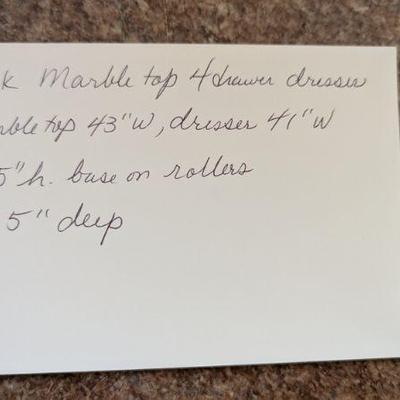 k Marble top 4 drawer dresser
rble top 43"W, dresser 41"W
5"h. base on rollers
5" deep